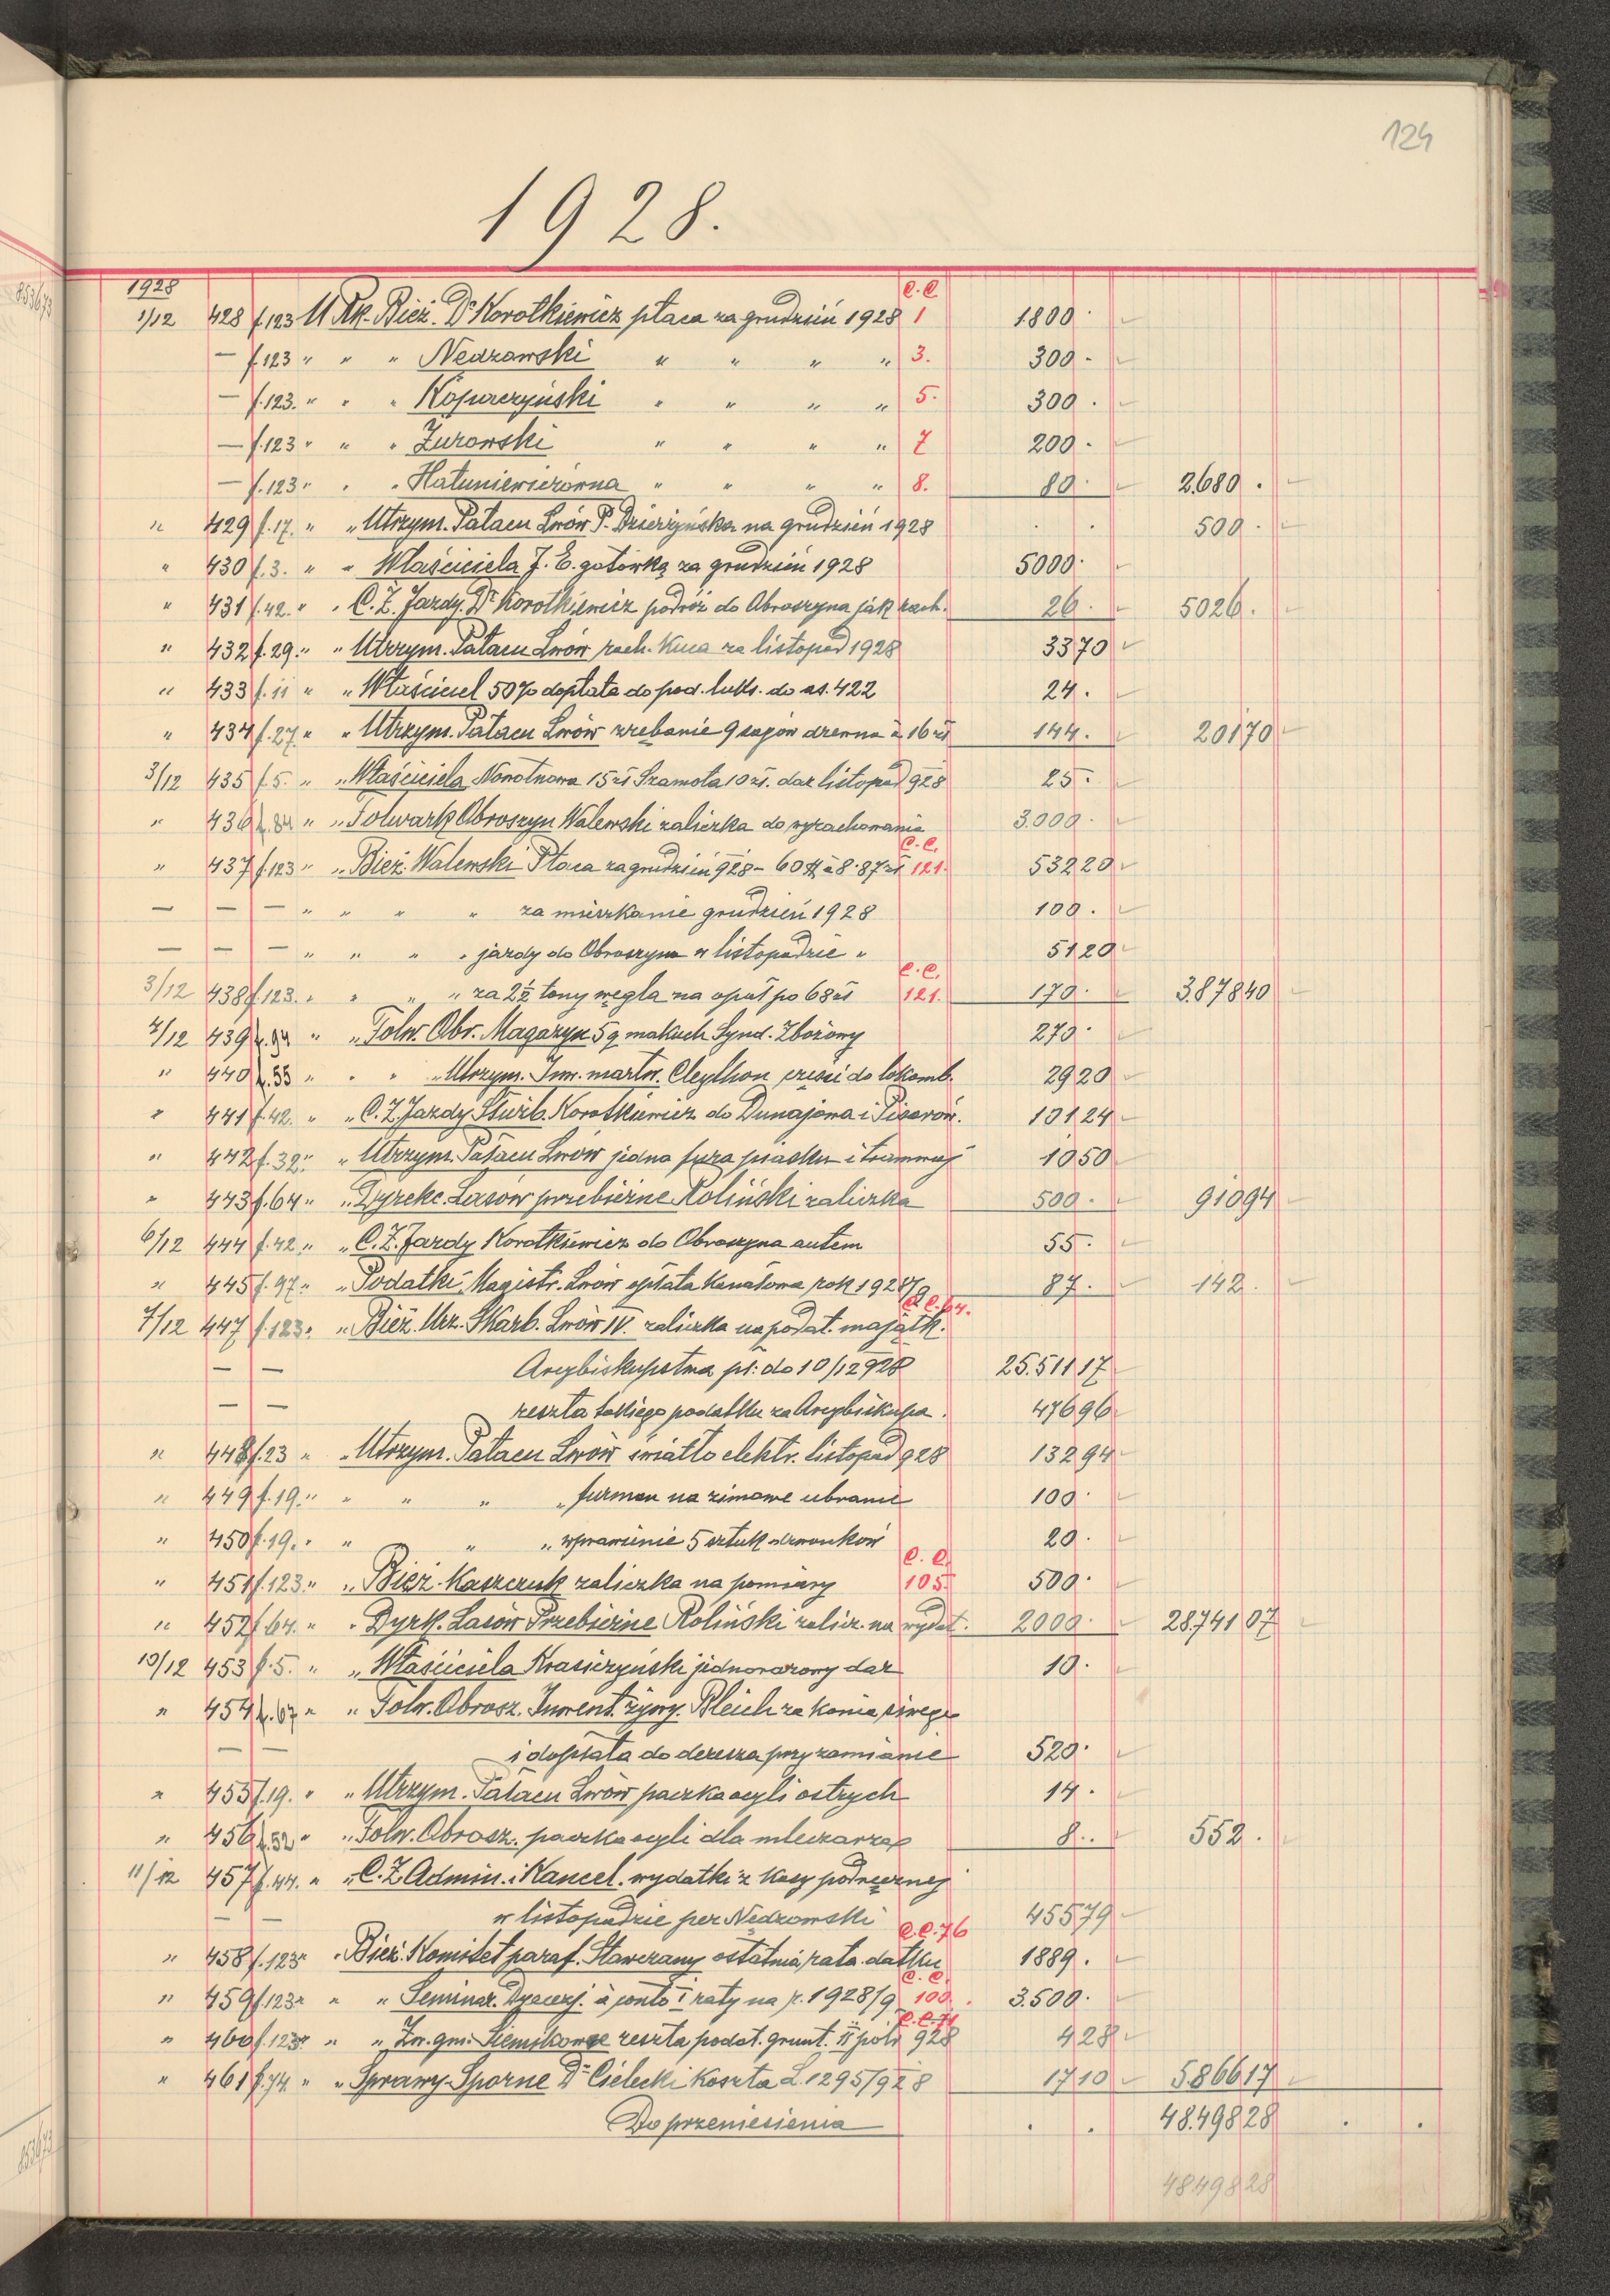 124
1928.
1928 C.C.
1/12 428 f.123 U Rk. Bież. Dr Korotkiewicz płaca za grudzień 1928 1 1800 ·
— f.123 " " " Nedzowski " " " " 3. 300 -
— f.123. " " " Kopaczyński " " " " 5. 300 ·
— f.123 " " " Żurowski " " " " 7 200 -
— f.123 " " " Hatuniewiczówna " " " " 8. 80 · 2.680 ·
" 429 f.17. " " Utrzym. Pałacu Lwów P. Dzierżyńska na grudzień 1928 · · 500 ·
" 430 f.3. " " Właściciela J. E. gotówką za grudzień 1928 5000 ·
" 431 f.42. " " C. Z. Jazdy. Dr Korotkiewicz podróż do Obroszyna jak rach. 26 · 5026.
" 432 f.29. " " Utrzym. Pałacu Lwów rach. Kuca za listopad 1928 33 70
" 433 f. 11 " " Właściciel 50% dopłata do pod. luks. do as. 422 24 .
" 434 f.27. " " Utrzym. Pałacu Lwów zrębanie 9 sągów drzewa à 16 zł 144. 201 70
3/12 435 f.5. " " Właściciela Nowotnowa 15 zł Szamota 10 zł. dar listopad 928 25 ·
" 436 f.84 " " Folwark Obroszyn Walewski zaliczka do wyrachowania 3.000 ·
C.C.
" 437 f.123 " " Bież. Walewski Płaca za grudzień 928 – 60 $ à 8·87 zł 121. 532 20
— — — " " " " za mieszkanie grudzień 1928 100 .
— — — " " " " jazdy do Obroszyna w listopadzie " 51 20
C.C.
3/12 438 f.123. " " " " za 2 1/2 tony węgla na opał po 68 zł 121. 170 · 3.878 40
4/12 439 f.94 " " Folw. Obr. Magazyn 5 q makuch Synd. Zbożowy 270 ·
" 440 f.55 " " " " Utrzym. Inw. martw. Cleython części do lokomb. 29 20
" 441 f.42. " " C. Z. Jazdy Służb. Korotkiewicz do Dunajowa i Pisarów. 101 24
" 442 f.32. " " Utrzym. Pałacu Lwów jedna fura piasku i tramwaj 10 50
" 443 f.64 " " Dyrekc. Lasów przebieżne Roliński zaliczka 500 · 910 94
6/12 444 f.42. " " C. Z. Jazdy Korotkiewicz do Obroszyna autem 55 ·
" 445 f.97. " " Podatki Magistr. Lwów opłata Kanałowa rok 1928/9 87 . 142 .
C.C.64.
7/12 447 f.123. " " Bież. Urz. Skarb. Lwów IV. zaliczka na podat. majątk.
— — Arcybiskupstwa pł: do 10/12 928 25.511 17
— — reszta takiego podatku za Arcybiskupa. 476 96
" 448 f.23 " " Utrzym. Pałacu Lwów światło elektr. listopad 928 132 94
" 449 f.19. " " " " " furman na zimowe ubranie 100 ·
" 450 f.19. " " " " wprawienie 5 sztuk dzwonków 20 ·
C.C.
" 451 f.123. " " Bież. Kaszczuk zaliczka na pomiary 105. 500 ·
" 452 f.64. " " Dyrk. Lasów Przebieżne Roliński zalicz. na wydat. 2000 · 28.741 07
10/12 453 f.5. " " Właściciela Krasiczyński jednorazowy dar 10 ·
" 454 f.67 " " Folw. Obrosz. Inwent. żywy. Bleich za konia siwego
— — i dopłata do deresza przy zamianie 520 ·
" 455 f.19. " " Utrzym. Pałacu Lwów paczka ocyli ostrych 14 .
" 456 f.52 " " Folw. Obrosz. paczka ocyli dla mleczarza 8 . . 552 .
11/12 457 f.44. " " C. Z. Admin. i Kancel. wydatki z kasy podręcznej
— — w listopadzie per Nędzowski 455 79
C.C.76
" 458 f.123 " " Bież. Komitet paraf. Stawczany ostatnia rata datku 1889 .
C.C.
" 459 f.123 " " " Seminar. Dyecezj. à conto I raty na r. 1928/9 100. 3.500 ·
C.C.71
" 460 f.123 " " " Zw. gm. Siemikowce reszta podat. grunt. II półr 928 4 28
" 461 f.74. " " Sprawy Sporne Dr Cielecki koszta L. 1295/928 17 10 5.866 17
Do przeniesienia · · 48.498 28 · ·
48498 28